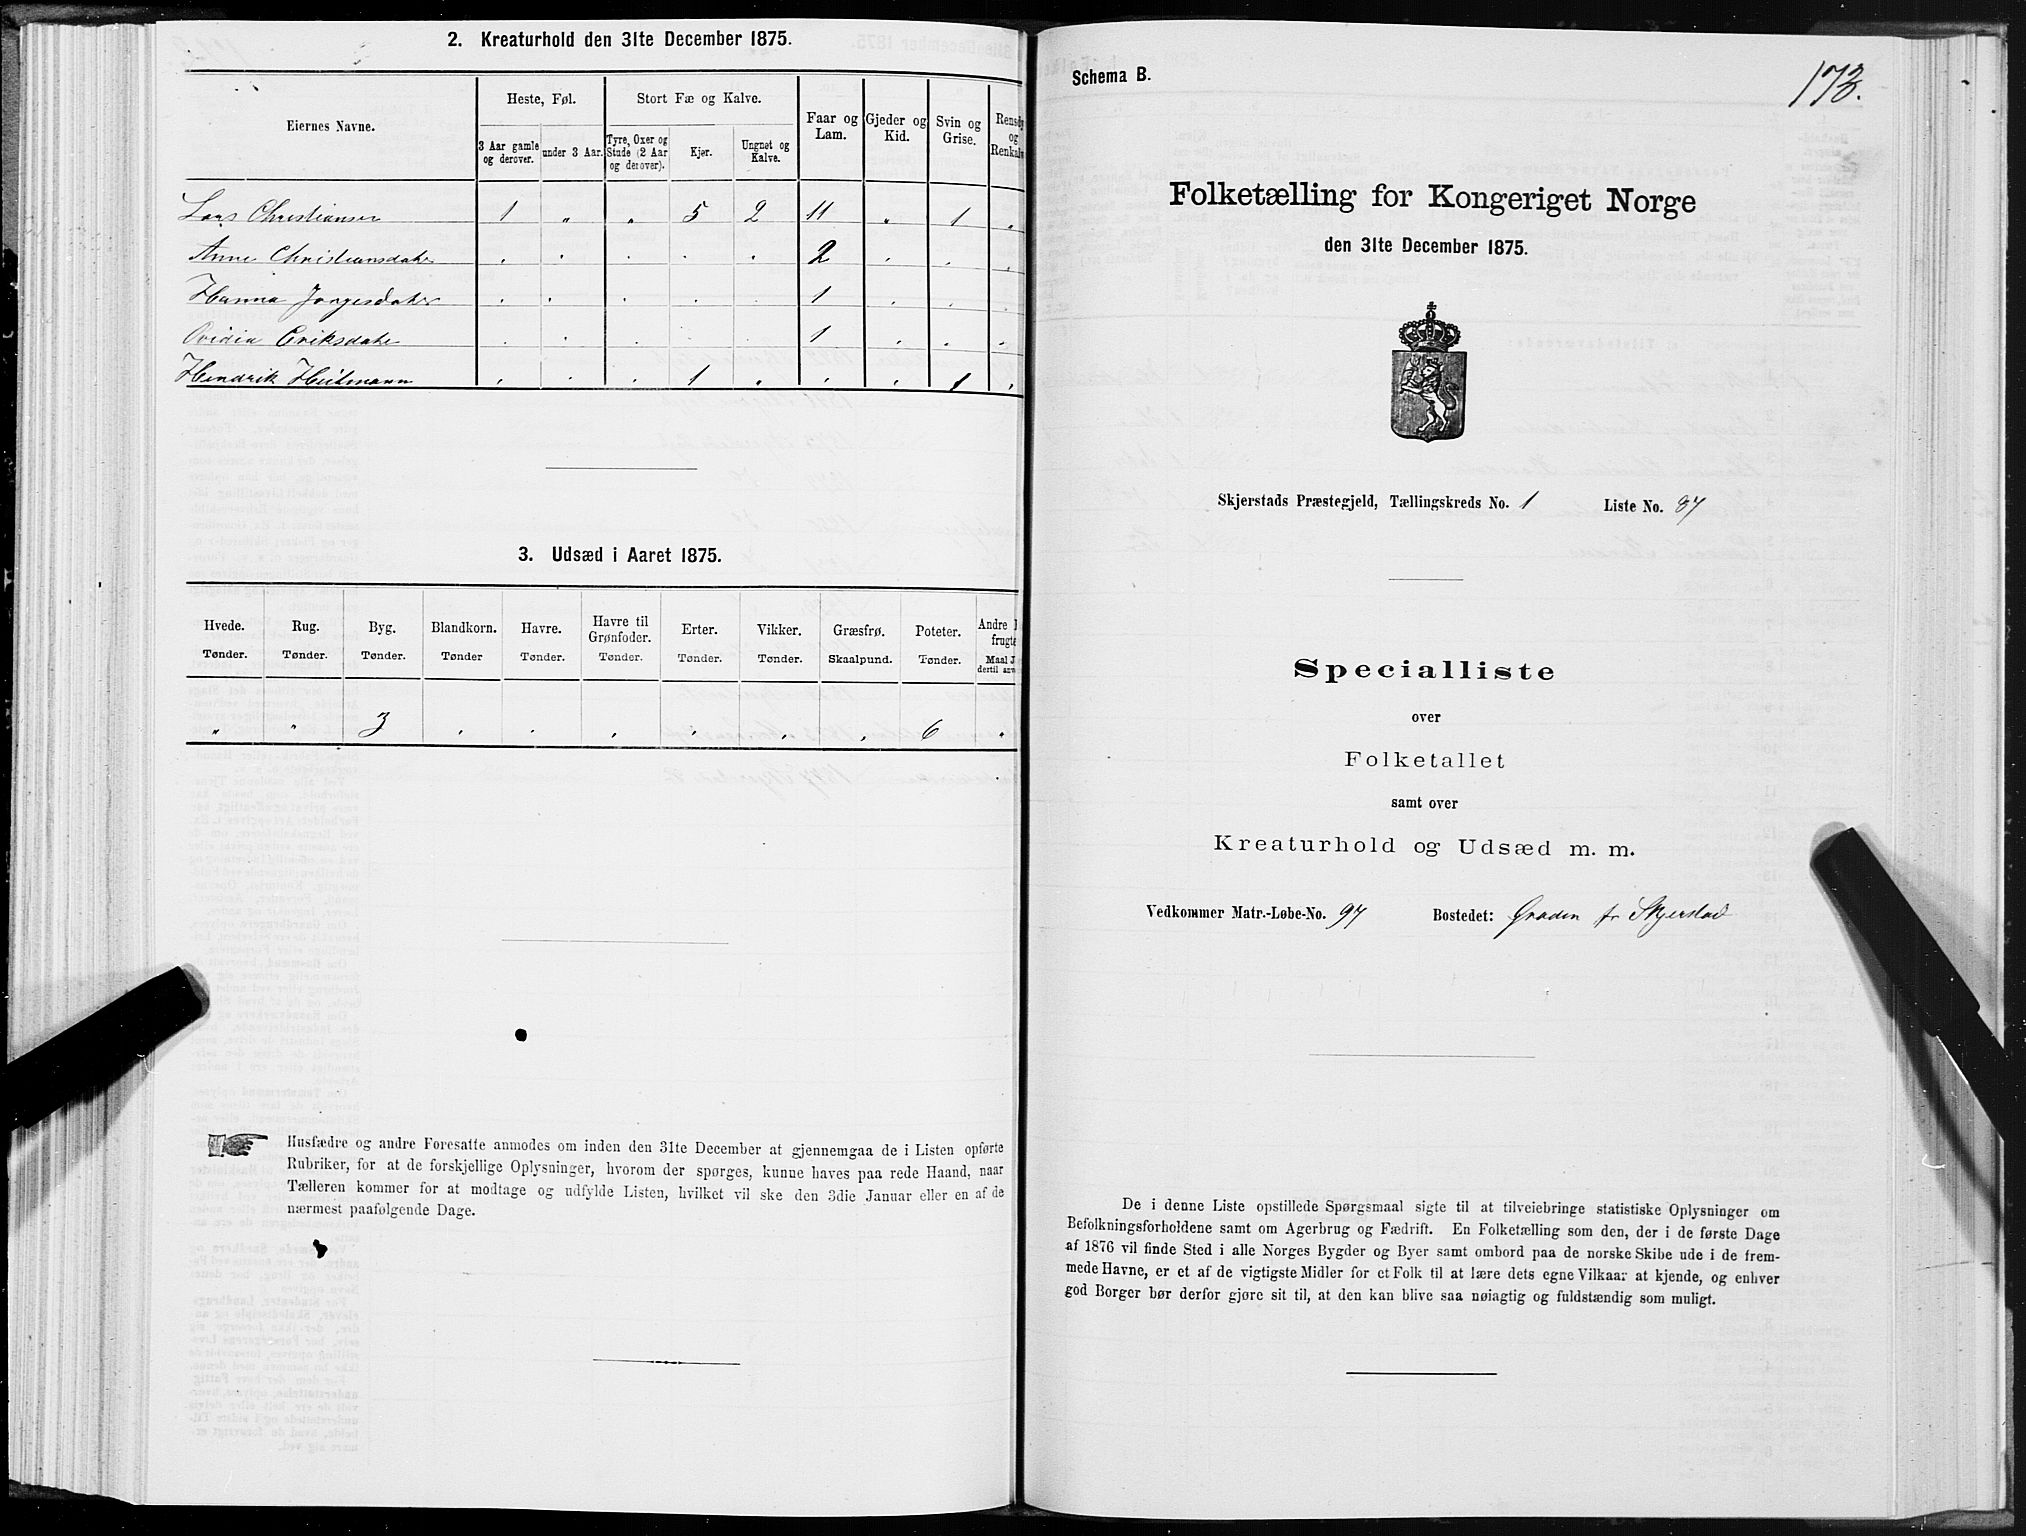 2. Kreaturhold den 31te December 1875.
Eiernes Navne.
Heste, Føl.
Stort Fæ og Kalve.
Faar og Lam.
Gjeder og Kid.
Svin og Grise.
Rensdy
og
Renkalv
3 Aar gamle og derover.
under 3 Aar.
Tyre, Oxer og Stude (2 Aar og derover).
Kjør.
Ungnøt og Kalve.
Lars Christiansen 1 " " 5 2 11 " 1 "
Anne Christiansdater " " " " " 2 " " "
Hanna Jørgesdater " " " " " 1 " " "
Ovidia Eriksdater " " " " " 1 " " "
Hendrik Heitmann " " " 1 " " " 1 "
3. Udsæd i Aaret 1875.
Hvede. Rug. Byg. Blandkorn. Havre. Havre til Grønfoder. Erter. Vikker. Græsfrø. Poteter. Andre
frugte
Tønder. Tønder. Tønder. Tønder Tønder. Tønder. Tønder. Tønder. Skaalpund. Tønder. Maal
dertil anv
" " 3 " " " " " " 6 "
Husfædre og andre Foresatte anmodes om inden den 31te December at gjennemgaa de i Listen opførte
Rubriker, for at de forskjellige Oplysninger, hvorom der spørges, kunne haves paa rede Haand, naar
Tælleren kommer for at modtage og udfylde Listen, hvilket vil ske den 3die Januar eller en af de
nærmest paafølgende Dage.
Schema B.
173.
Folketælling for Kongeriget Norge
den 31te December 1875.
Skjerstads Præstegjeld, Tællingskreds No. 1 Liste No. 87
Specialliste
over
Folketallet
samt over
Kreaturhold og Udsæd m. m.
Vedkommer Matr.-Løbe-No. 97 Bostedet: Øraden fr Skjerstad
De i denne Liste opstillede Spørgsmaal sigte til at tilveiebringe statistiske Oplysninger om
Befolkningsforholdene samt om Agerbrug og Fædrift. En Folketælling som den, der i de første Dage
af 1876 vil finde Sted i alle Norges Bygder og Byer samt ombord paa de norske Skibe ude i de frem-
mede Havne, er et af de vigtigste Midler for et Folk til at lære dets egne Vilkaar at kjende, og enhver
god Borger bør derfor gjøre sit til, at den kan blive saa nøiagtig og fuldstændig som muligt.